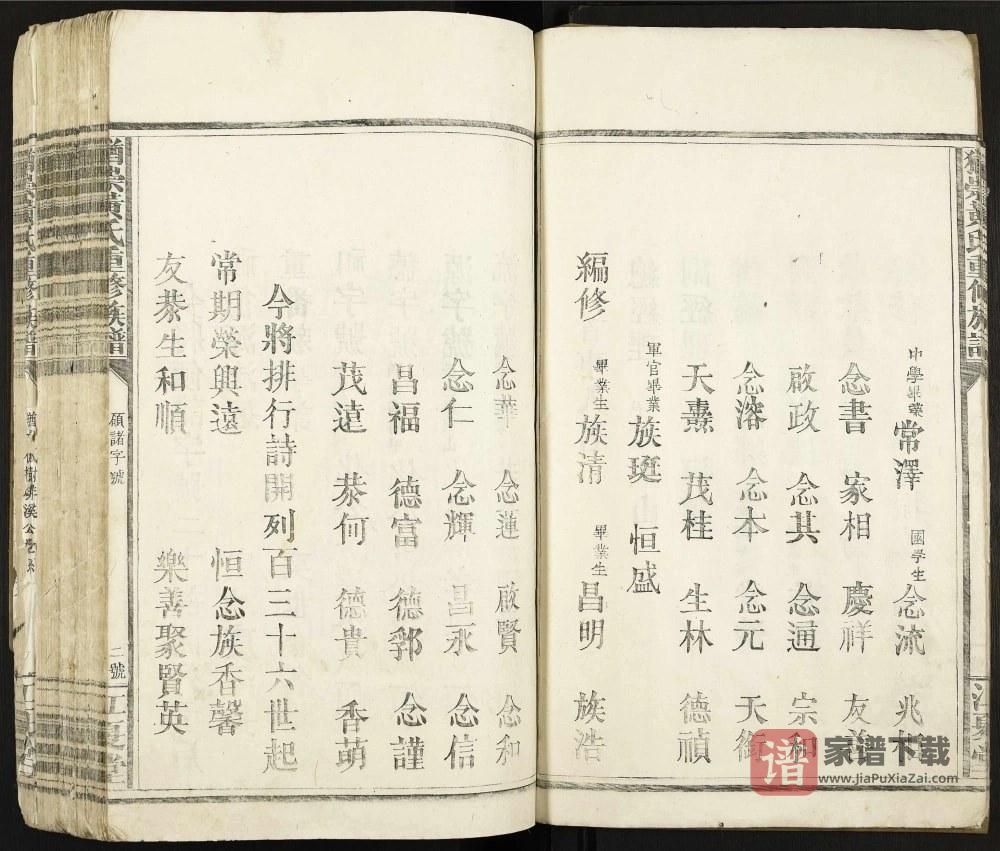 黃氏重修族譜
中學畢業 常澤 國學生 念流 兆
念書 家相 慶祥 友
啟政 念其 念通 宗和
念溶 念本 念元 天銜
天燾 茂桂 生林 德禎
軍官畢業 族珽 恒盛
編修 畢業生 族清 畢業生 昌明 族浩
念華 念蓮 啟賢 念和
念仁 念輝 昌永 念信
昌福 德富 德郛 念謹
茂遠 恭何 德貴 香萌
今將排行詩開列百三十六世起
常期榮興遠 恒念族香馨
友恭生和順 樂善聚賢英
猶崇黃氏重修族譜
碩諸字號
二號
江夏堂
谱
家谱下载
www.jiaPuXiaZai.com